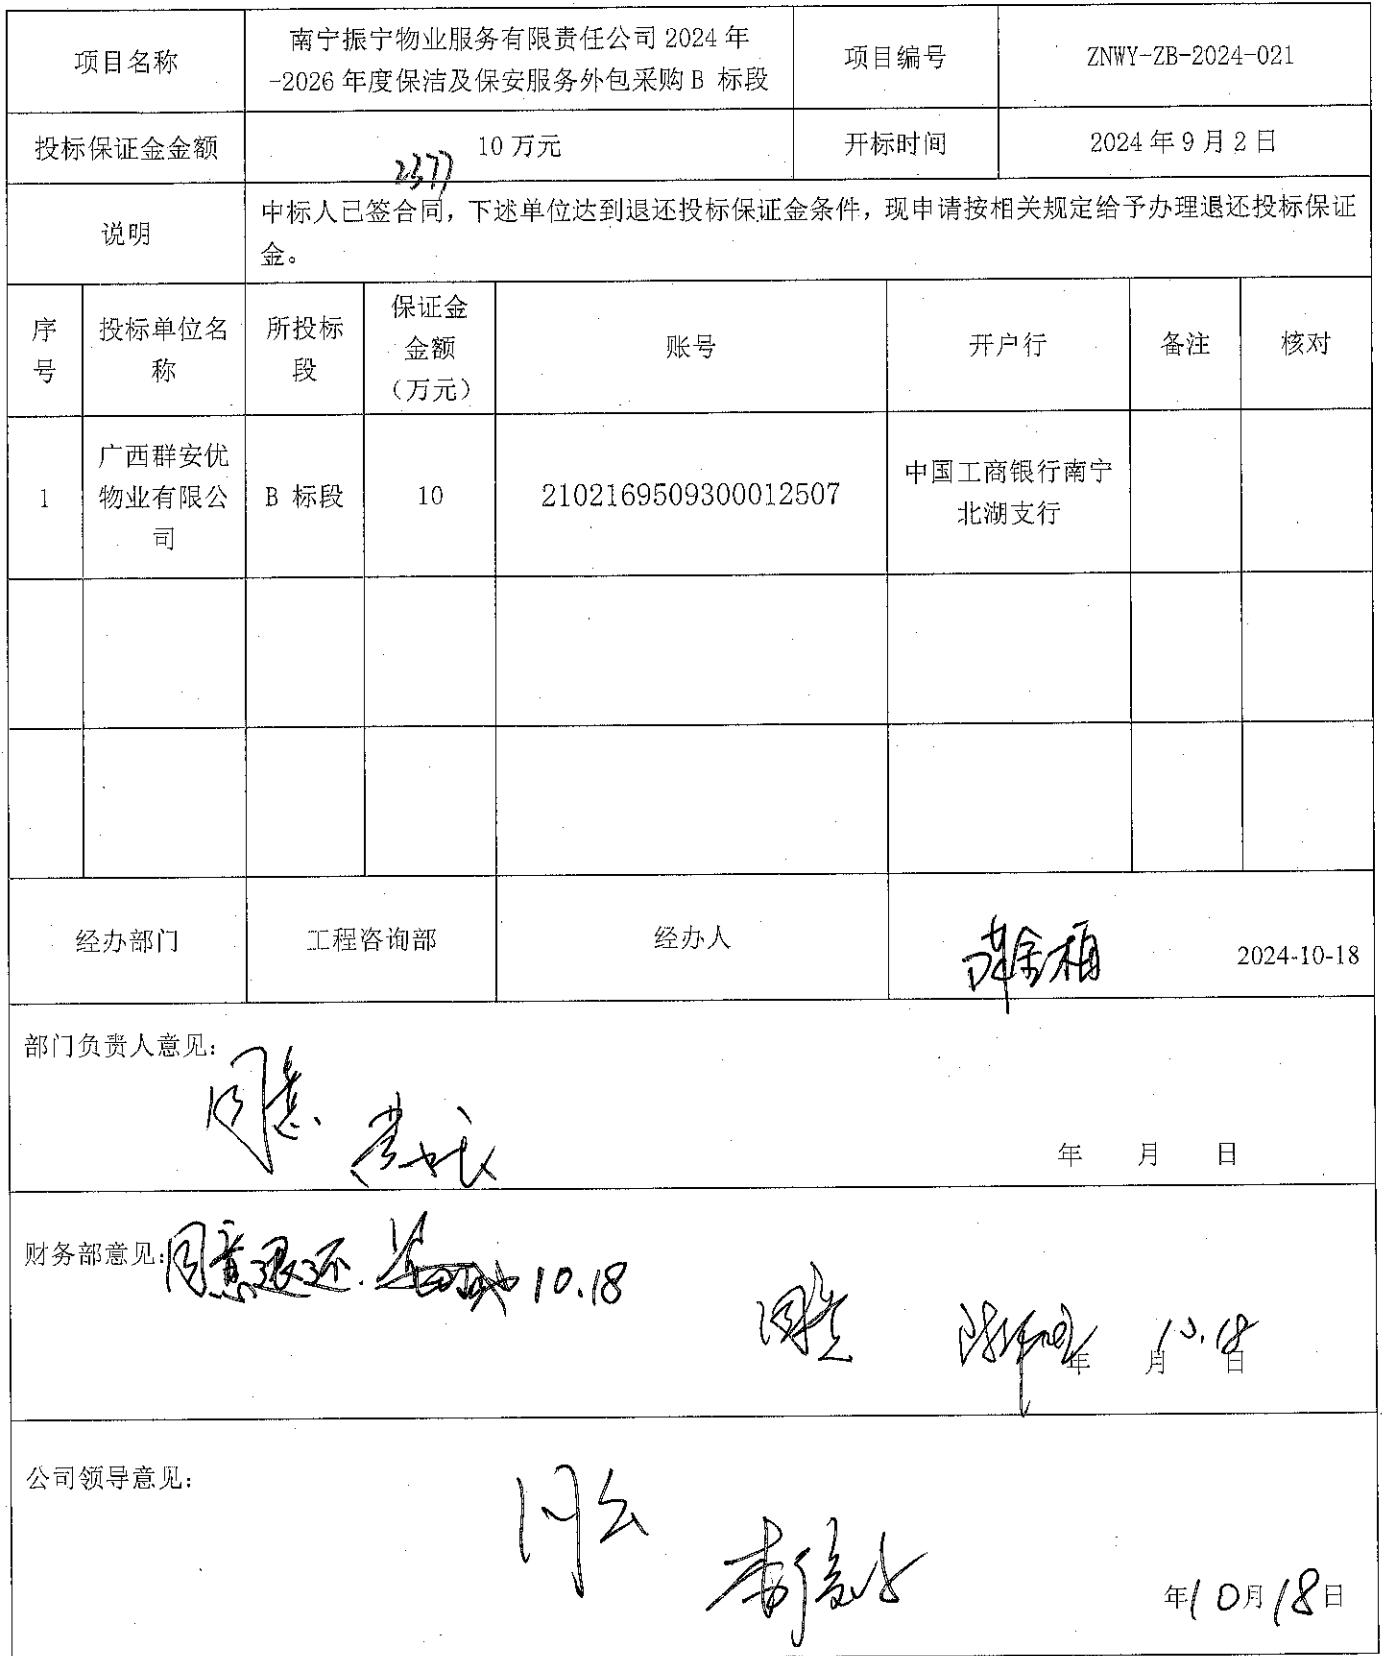 项目名称
南宁振宁物业服务有限责任公司 2024 年
-2026 年度保洁及保安服务外包采购 B 标段
项目编号
ZNWY-ZB-2024-021
投标保证金金额
10 万元
2377
开标时间
2024 年 9 月 2 日
说明
中标人已签合同，下述单位达到退还投标保证金条件，现申请按相关规定给予办理退还投标保证
金。
序
号
投标单位名
称
所投标
段
保证金
金额
（万元）
账号
开户行
备注
核对
1
广西群安优
物业有限公
司
B 标段
10
2102169509300012507
中国工商银行南宁
北湖支行
经办部门
工程咨询部
经办人
2024-10-18
部门负责人意见：
同意
年 月 日
财务部意见：
同意退还. 10.18
同意
10.18
年 月 日
公司领导意见：
同意
年10月18日